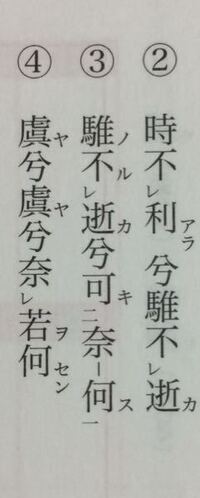 ② 時不レ利アラ兮騅不レ逝カ
③ 騅ノ不ルレ逝カ兮可キ二奈－何ス一
④ 虞ヤ兮虞ヤ兮奈レ若ヲ何セン